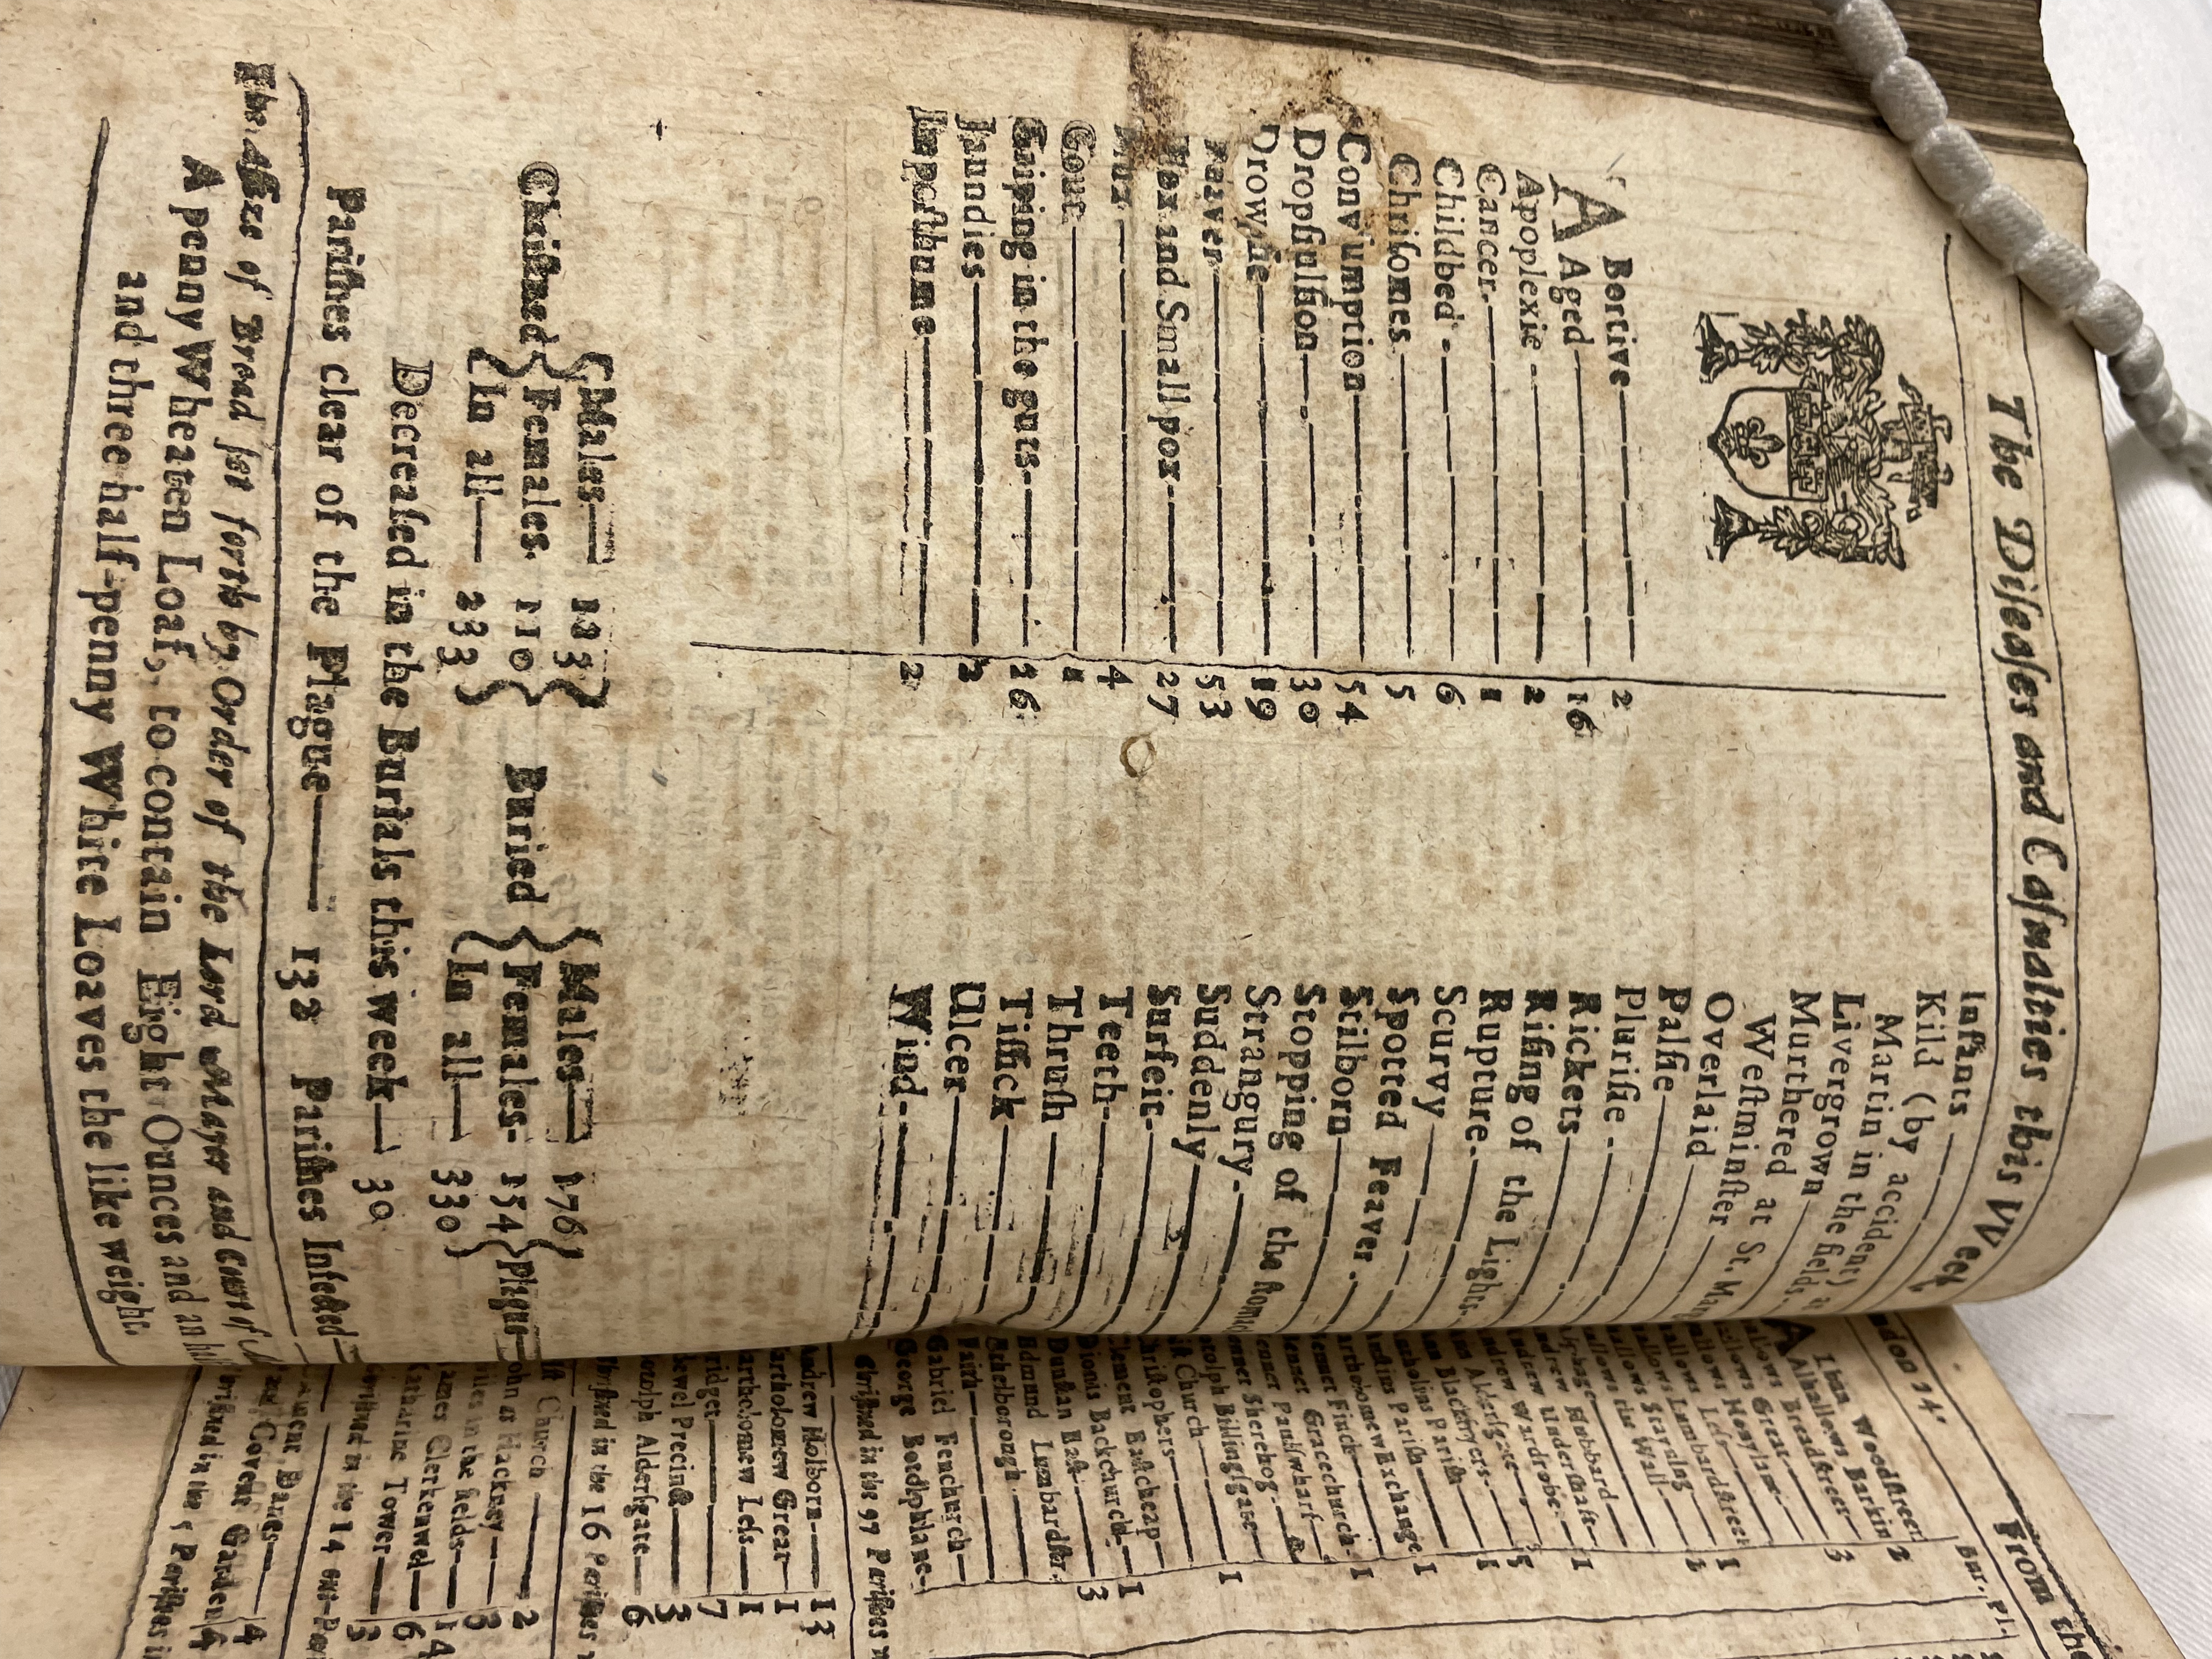 The Diſeaſes and Caſualties this VVeek
A Bortive 2
Aged 16
Apoplexie 2
Cancer 1
Childbed 6
Chriſomes 5
Conſumption 54
Dropſie 30
Drowned 19
Feaver 53
Flox and Small pox 27
Flux 4
Gout 1
Griping in the guts 26
Jaundies 2
Impoſthume 2
Infants
Kild (by accident) a
Martin in the fields,
Livergrown
Murthered at St. Mar
Weſtminſter
Overlaid
Palſie
Pluriſie
Rickets
Riſing of the Lights
Rupture
Scurvy
Spotted Feaver
Stilborn
Stopping of the ſtomac
Strangury
Suddenly
Surfeit
Teeth
Thruſh
Tiſſick
Ulcer
Wind
Chriſtned { Males 123 Females. 110 In all 233 }
Buried { Males 176 Females 154 In all 330 } Plague
Decreaſed in the Burials this week 30
Pariſhes clear of the Plague 132 Pariſhes Infected
The Aſſize of Bread ſet forth by Order of the Lord Mayor and Court of
A penny Wheaten Loaf, to contain Eight Ounces and an hal
and three half-penny White Loaves the like weight.
ndon 14.
From the
Bur. Pl.
Alban Woodſtreet
Alhallows Barkin 2
Alhallows Breadſtreet 3
Great
Honylane
Leſs 1
Lumbardſtreet 1
Stayning
the Wall
Hubbard
Underſhaft 1
Wardrobe
Alderſgate 5
Blackfryers 1
Pariſh
Pariſh 1
Bartholomew Exchange 1
Finck
Gracechurch 1
Paulſwharf
Sherehog
Billingſgate 1
Church
hriſtophers
lement Eaſtcheap 1
Dionis Backchurch 3
Dunſtan Eaſt
Edmund Lumbardſtr.
Ethelborough
Faith
Gabriel Fenchurch
George Botolphlane
Chriſtned in the 97 Pariſhes
Andrew Holborn 13
Bartholomew Great 1
Bartholomew Leſs 1
Bridget 7
Bridewel Precinct 3
Botolph Alderſgate 6
Chriſtned in the 16 Pariſhes
Church 2
John at Hackney 3
Giles in the fields 14
James Clerkenwel 6
Katharine Tower 3
Chriſtned in the 14 out-Par
Clement Danes 4
Paul Covent Garden 4
Chriſtned in the 5 Pariſhes i